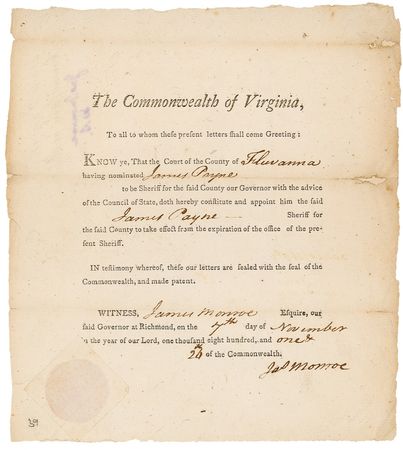 The Commonwealth of Virginia,
To all to whom these present letters shall come Greeting:
KNOW ye, That the Court of the County of Fluvanna
having nominated James Payne
to be Sheriff for the said County our Governor with the advice
of the Council of State, doth hereby constitute and appoint him the said
James Payne — Sheriff for
the said County to take effect from the expiration of the office of the pre-
sent Sheriff.
IN testimony whereof, these our letters are sealed with the seal of the
Commonwealth, and made patent.
WITNESS, James Monroe Esquire, our
said Governor at Richmond, on the 7th day of November
in the year of our Lord, one thousand eight hundred, and one &
of the Commonwealth.
Jas Monroe
39